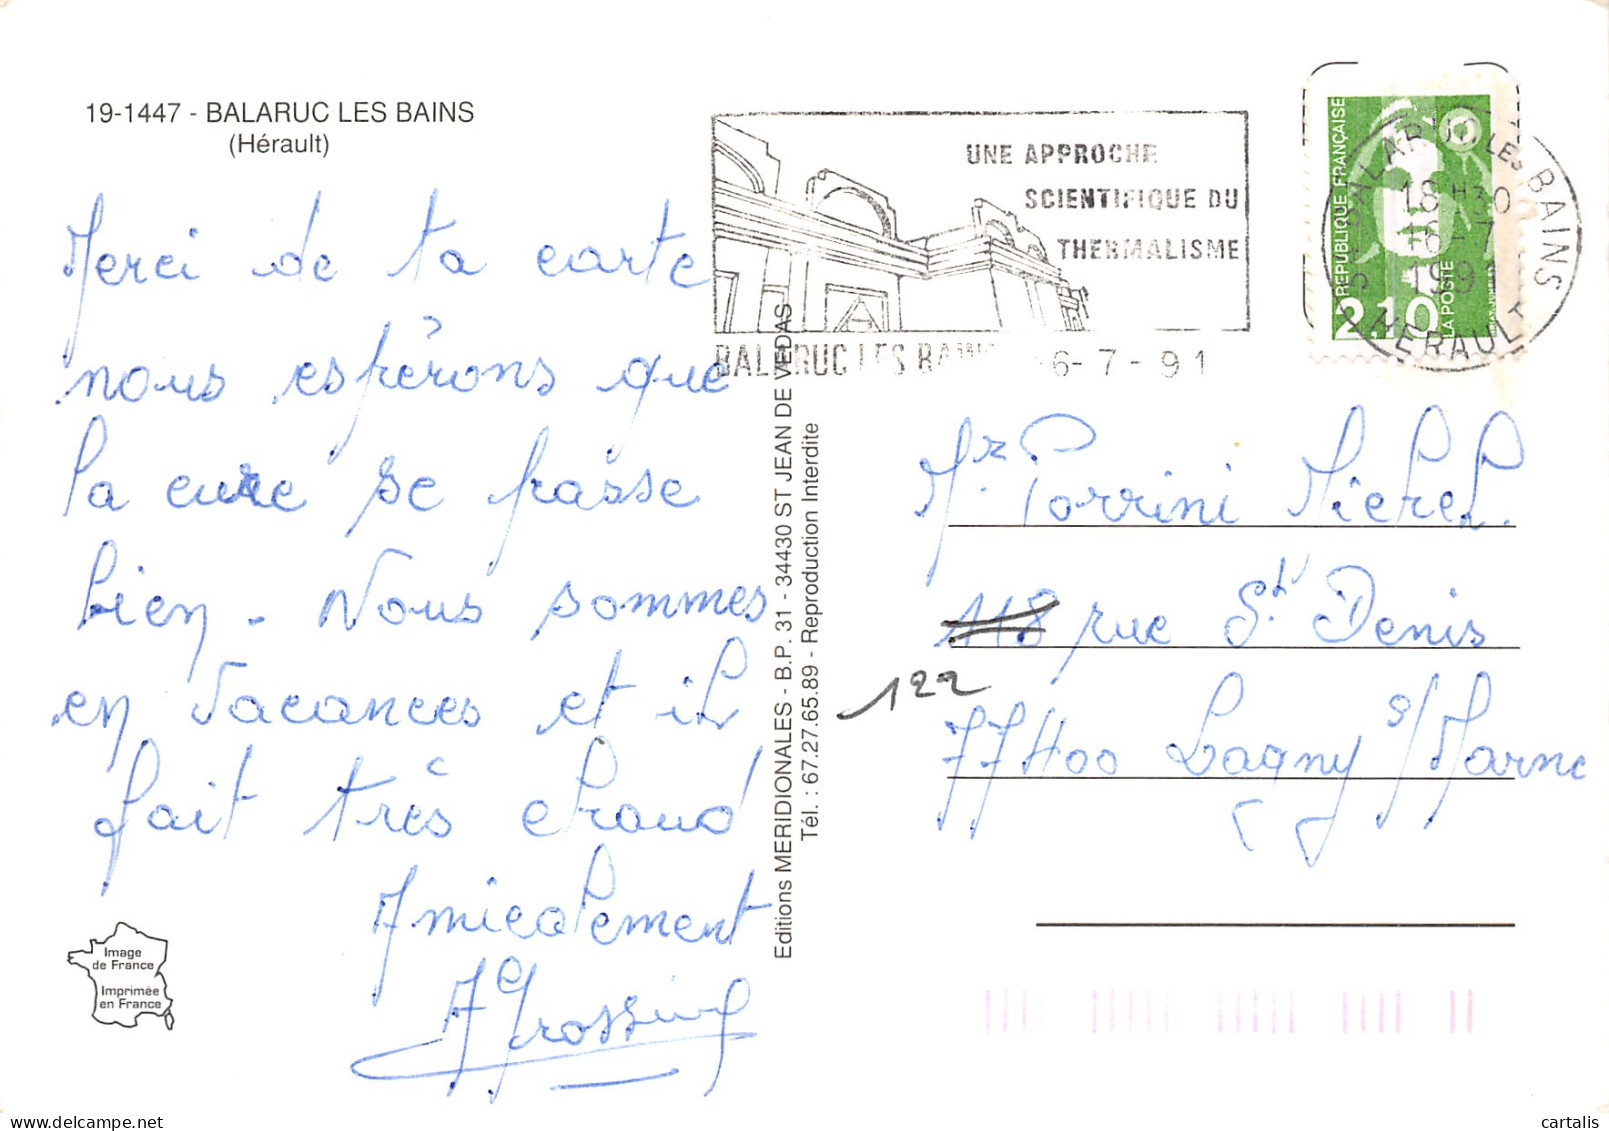 19-1447 - BALARUC LES BAINS
(Hérault)
Merci de ta carte
nous espérons que
la cure se passe
bien - Nous sommes
en vacances et il
fait très chaud
Amicalement
Image
de France
Imprimée
en France
Editions MERIDIONALES - B.P. 31 - 34430 ST JEAN DE VEDAS
Tél. : 67.27.65.89 - Reproduction Interdite
UNE APPROCHE
SCIENTIFIQUE DU
THERMALISME
BALARUC LES BAINS 6-7-91
REPUBLIQUE FRANÇAISE
2,10
LA POSTE
BALARUC LES BAINS
18H30
6-7
1991
HERAULT
Mr. Porrini Michel.
118 rue St Denis
122
77400 Lagny s/Marne
cartalis